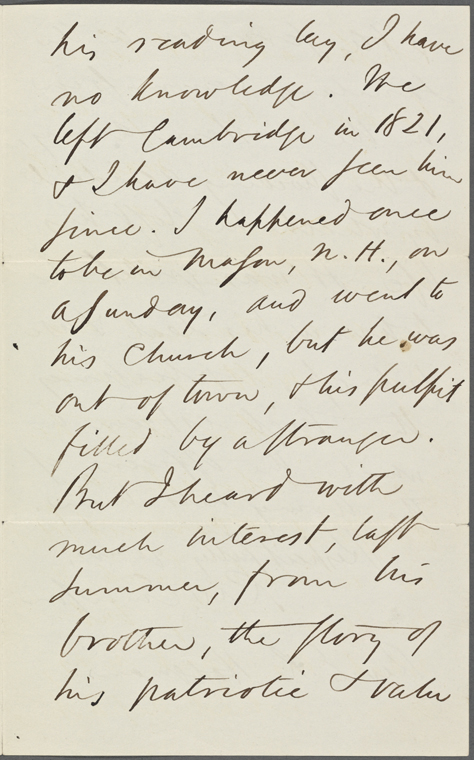 his reading lay, I have
no knowledge. We
left Cambridge in 1821,
& I have never seen him
since. I happened once
to be in Mason, N. H., on
a Sunday, and went to
his church, but he was
out of town, & his pulpit
filled by a stranger.
But I heard with
much interest, last
summer, from his
brother, the story of
his patriotic & valu